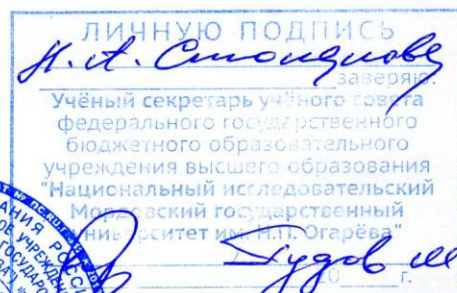 ЛИЧНУЮ ПОДПИСЬ
Н. А.
заверяю:
Учёный секретарь учёного совета
федерального государственного
бюджетного образовательного
учреждения высшего образования
"Национальный исследовательский
Мордовский государственный
университет им. Н.П. Огарёва"
20 г.